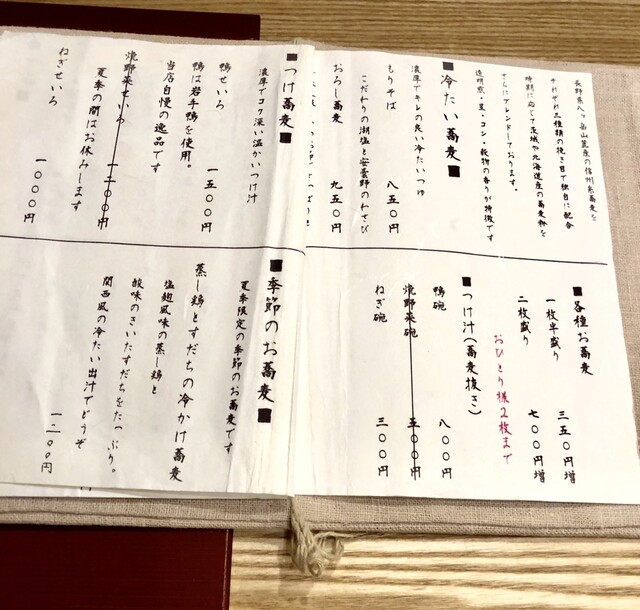 長野県八ヶ岳山麓産の信州蕎麦を
それぞれ三種類の挽き目で独自に配合
時期に応じて茨城や北海道産の蕎麦粉を
さらにブレンドしております。
透明感・星・コシ・穀物の香りが特徴です
■冷たい蕎麦■
濃厚でキレの良い冷たいつゆ
もりそば 八五〇円
こだわりの湖塩と安曇野のわさび
おろし蕎麦 九五〇円
■つけ蕎麦■
濃厚でコク深い温かいつけ汁
鴨せいろ 一五〇〇円
鴨は岩手鴨を使用。
当店自慢の逸品です
焼野菜せいろ 一二〇〇円
夏季の間はお休みします
ねぎせいろ 一〇〇〇円
■各種お蕎麦
一枚半盛り 三五〇円増
二枚盛り 七〇〇円増
おひとり様2枚まで
■つけ汁(蕎麦抜き)
鴨碗 八〇〇円
焼野菜碗 五〇〇円
ねぎ碗 三〇〇円
■季節のお蕎麦■
夏季限定の季節のお蕎麦です
蒸し鶏とすだちの冷かけ蕎麦
塩麹風味の蒸し鶏と
酸味のきいたすだちをたっぷり。
関西風の冷たい出汁でどうぞ
一二〇〇円